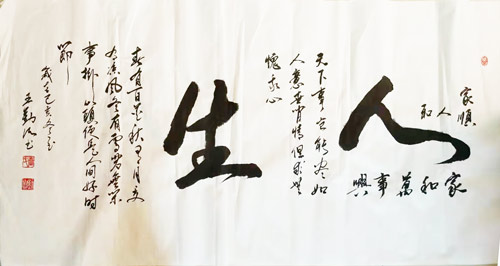 家順
人和
人
家和萬事興
天下事豈能盡如
人意世間情但求無
愧心
生
春有百花秋有月夏
有涼風冬有雪若無閑
事掛心頭便是人間好時
節
歲己亥冬
王書